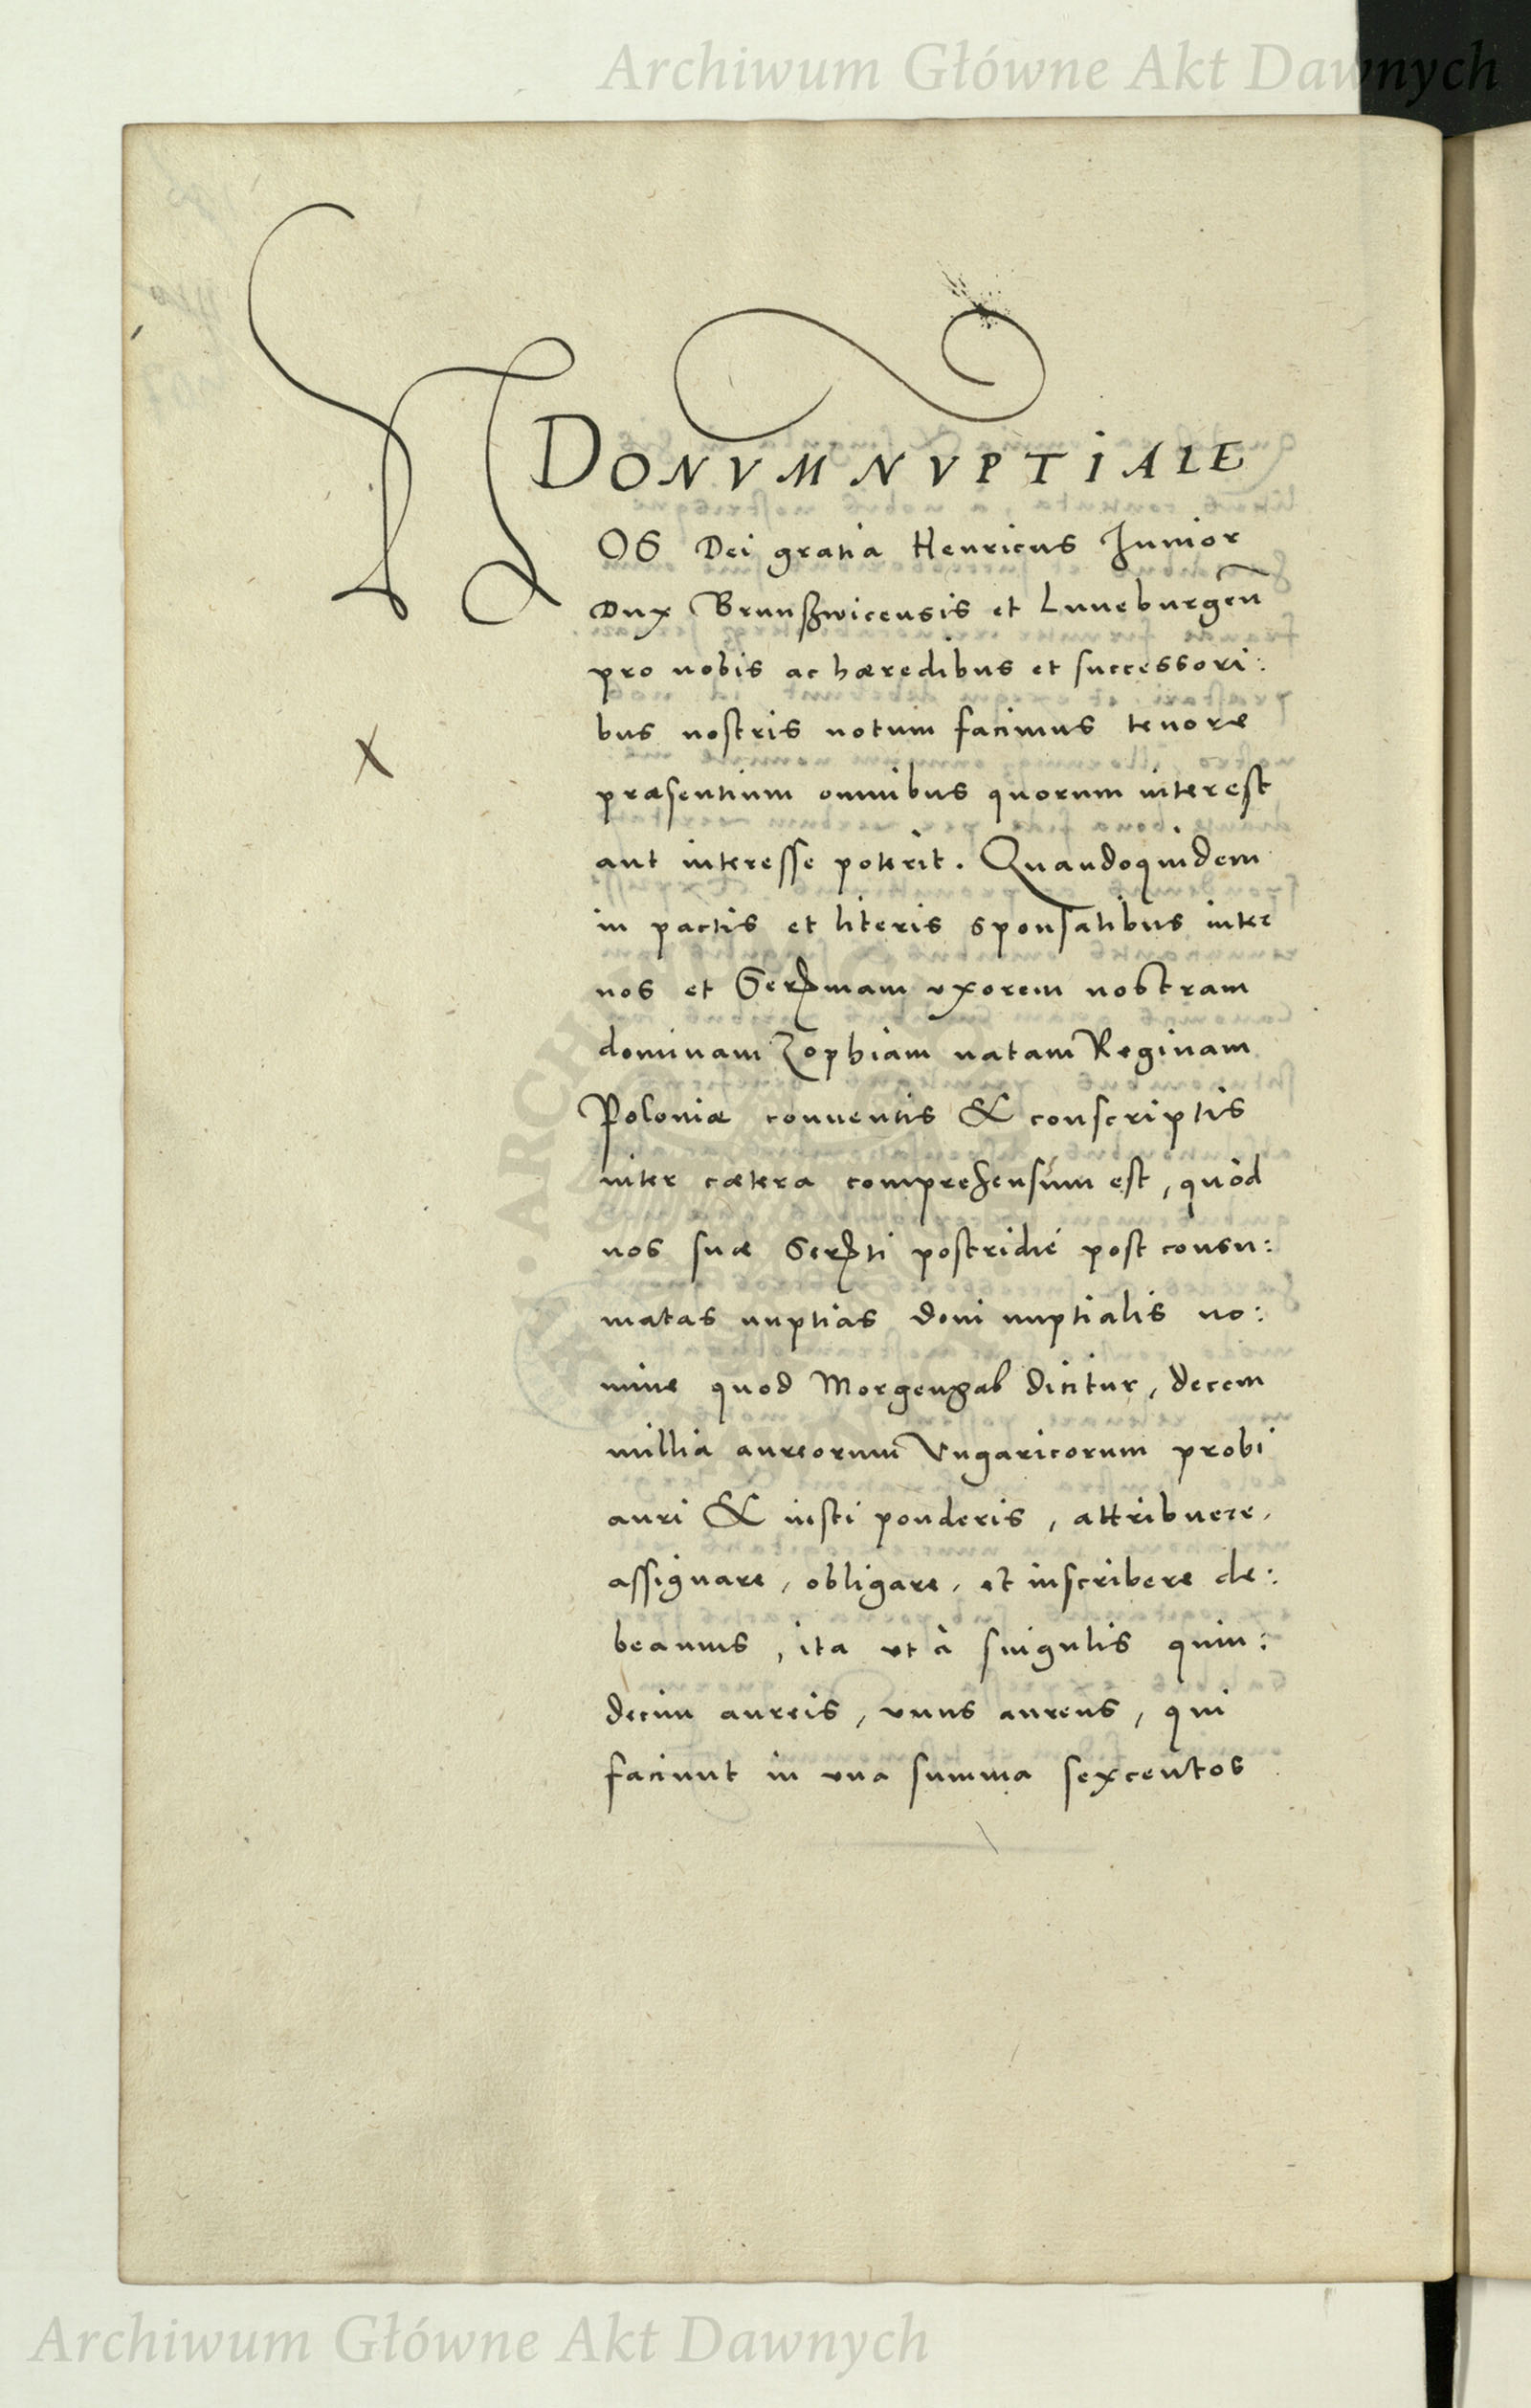 Archiwum Główne Akt Dawnych
DONVM NVPTIALE
NOS Dei gratia Henricus Junior
Dux Brunßwicensis et Luneburgen
pro nobis ac hæredibus et successori:
bus nostris notum facimus tenore
præsentium omnibus quorum interest
aut interesse poterit. Quandoquidem
in pactis et literis sponsalibus inter
nos et Sermam uxorem nostram
dominam Zophiam natam Reginam
Poloniæ conventis & conscriptis
inter cætera comprehensum est, quòd
nos suæ Serti postridie post consu:
matas nuptias doni nuptialis no:
mine quod Morgengab dicitur, decem
millia aureorum Vngaricorum probi
auri & iusti ponderis, attribuere,
assignare, obligare, et inscribere de:
beamus, ita vt à singulis quin:
decim aureis, vnus aureus, qui
faciunt in vna summa sexcentos
X
Archiwum Główne Akt Dawnych